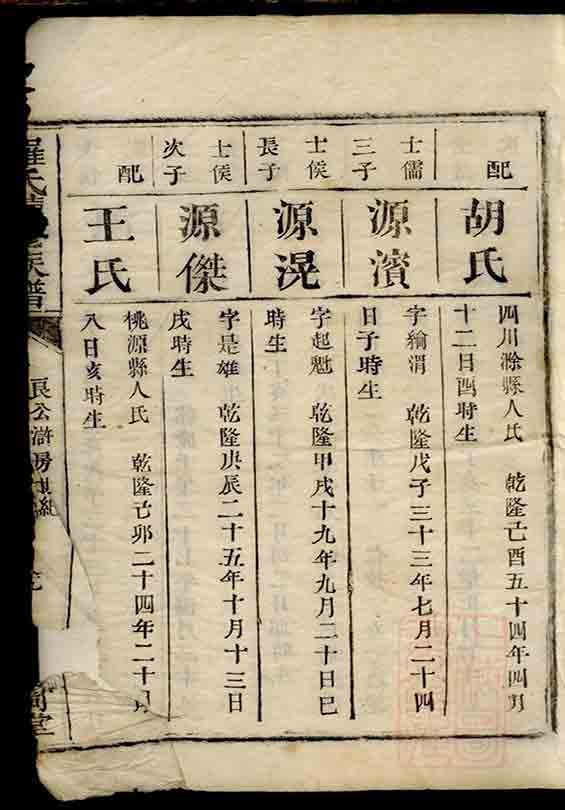 配
胡氏
四川滁縣人氏　乾隆己酉五十四年四月
十二日酉時生
士儒
三子
源濱
字綸渭　乾隆戊子三十三年七月二十四
日子時生
士俟
長子
源滉
字起魁　乾隆甲戌十九年九月二十日巳
時生
士俟
次子
源傑
字是雄　乾隆庚辰二十五年十月十三日
戌時生
配
王氏
桃源縣人氏　乾隆己卯二十四年二十月
八日亥時生
羅氏
族譜
良公滸房
堂